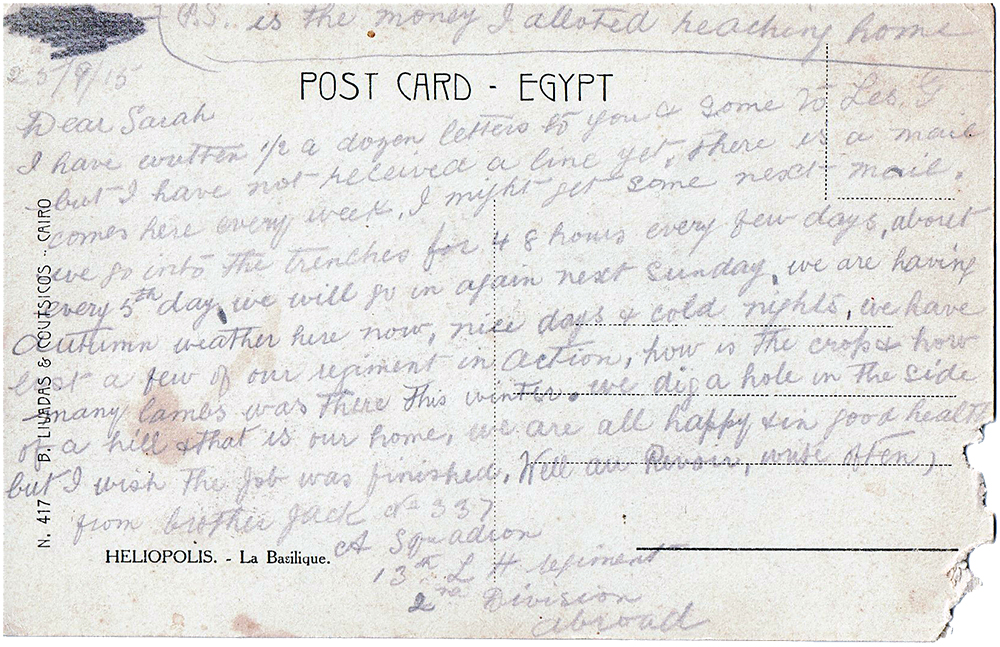 P.S. is the money I alloted reaching home
25/9/15
POST CARD - EGYPT
Dear Sarah
I have written 1/2 a dozen letters to you & some to Les. G
but I have not received a line yet, there is a mail
comes here every week, I might get some next mail.
we go into the trenches for 48 hours every few days, about
every 5th day, we will go in again next Sunday, we are having
Autumn weather here now, nice days & cold nights, we have
lost a few of our regiment in action, how is the crops & how
many lambs was there this winter. we dig a hole in the side
of a hill & that is our home, we are all happy & in good health
but I wish the job was finished. Well au Revoir, write often,
from brother Jack No 337
A Squadron
13th L H regiment
2nd Division
abroad
N. 417 B. LIVADAS & COUTSICOS - CAIRO
HELIOPOLIS. - La Basilique.